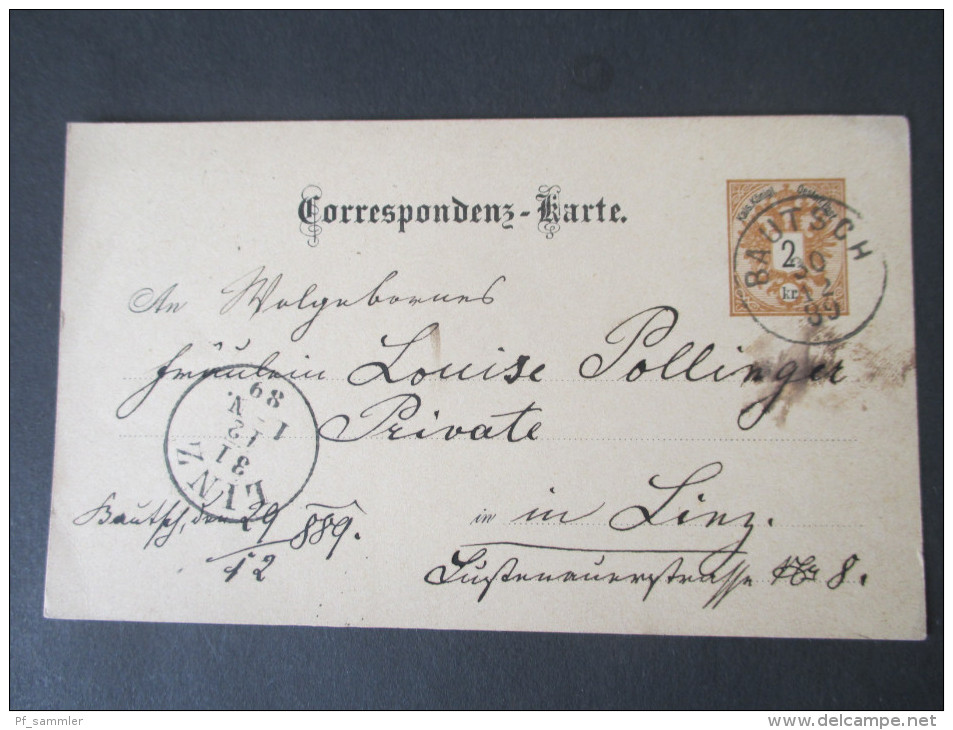 Correspondenz-Karte.
Kais. Königl.
2
kr.
BAUTSCH
30
12
89
An Wolgebornes
Fräulein Louise Pollinger
Private
in in Linz.
Lustenauerstrasse No 8.
Bautsch, den 29/12 889.
LINZ
31
12
1 N.
89
Pf_sammler
www.delcampe.net